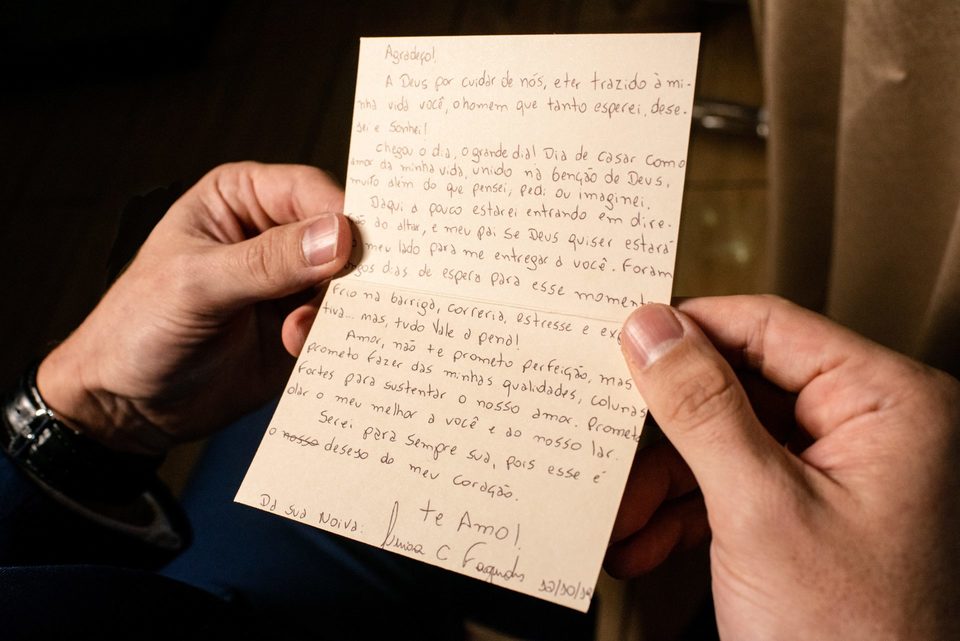 Agradeço!
A Deus por cuidar de nós, e ter trazido à mi-
nha vida você, o homem que tanto esperei, dese-
jei e sonhei!
Chegou o dia, o grande dia! Dia de casar com o
amor da minha vida, unido na benção de Deus,
muito além do que pensei, pedi ou imaginei.
Daqui a pouco estarei entrando em dire-
do altar, e meu pai se Deus quiser estará
meu lado para me entregar a você. Foram
dias de espera para esse moment
Frio na barriga, correria, estresse e
tiva... mas, tudo vale a pena!
Amor, não te prometo perfeição, mas
prometo fazer das minhas qualidades, colunas
fortes para sustentar o nosso amor. Prometo
o meu melhor a você e ao nosso lar.
Serei para sempre sua, pois esse é
o nosso do meu coração.
te Amo!
Da sua Noiva: C